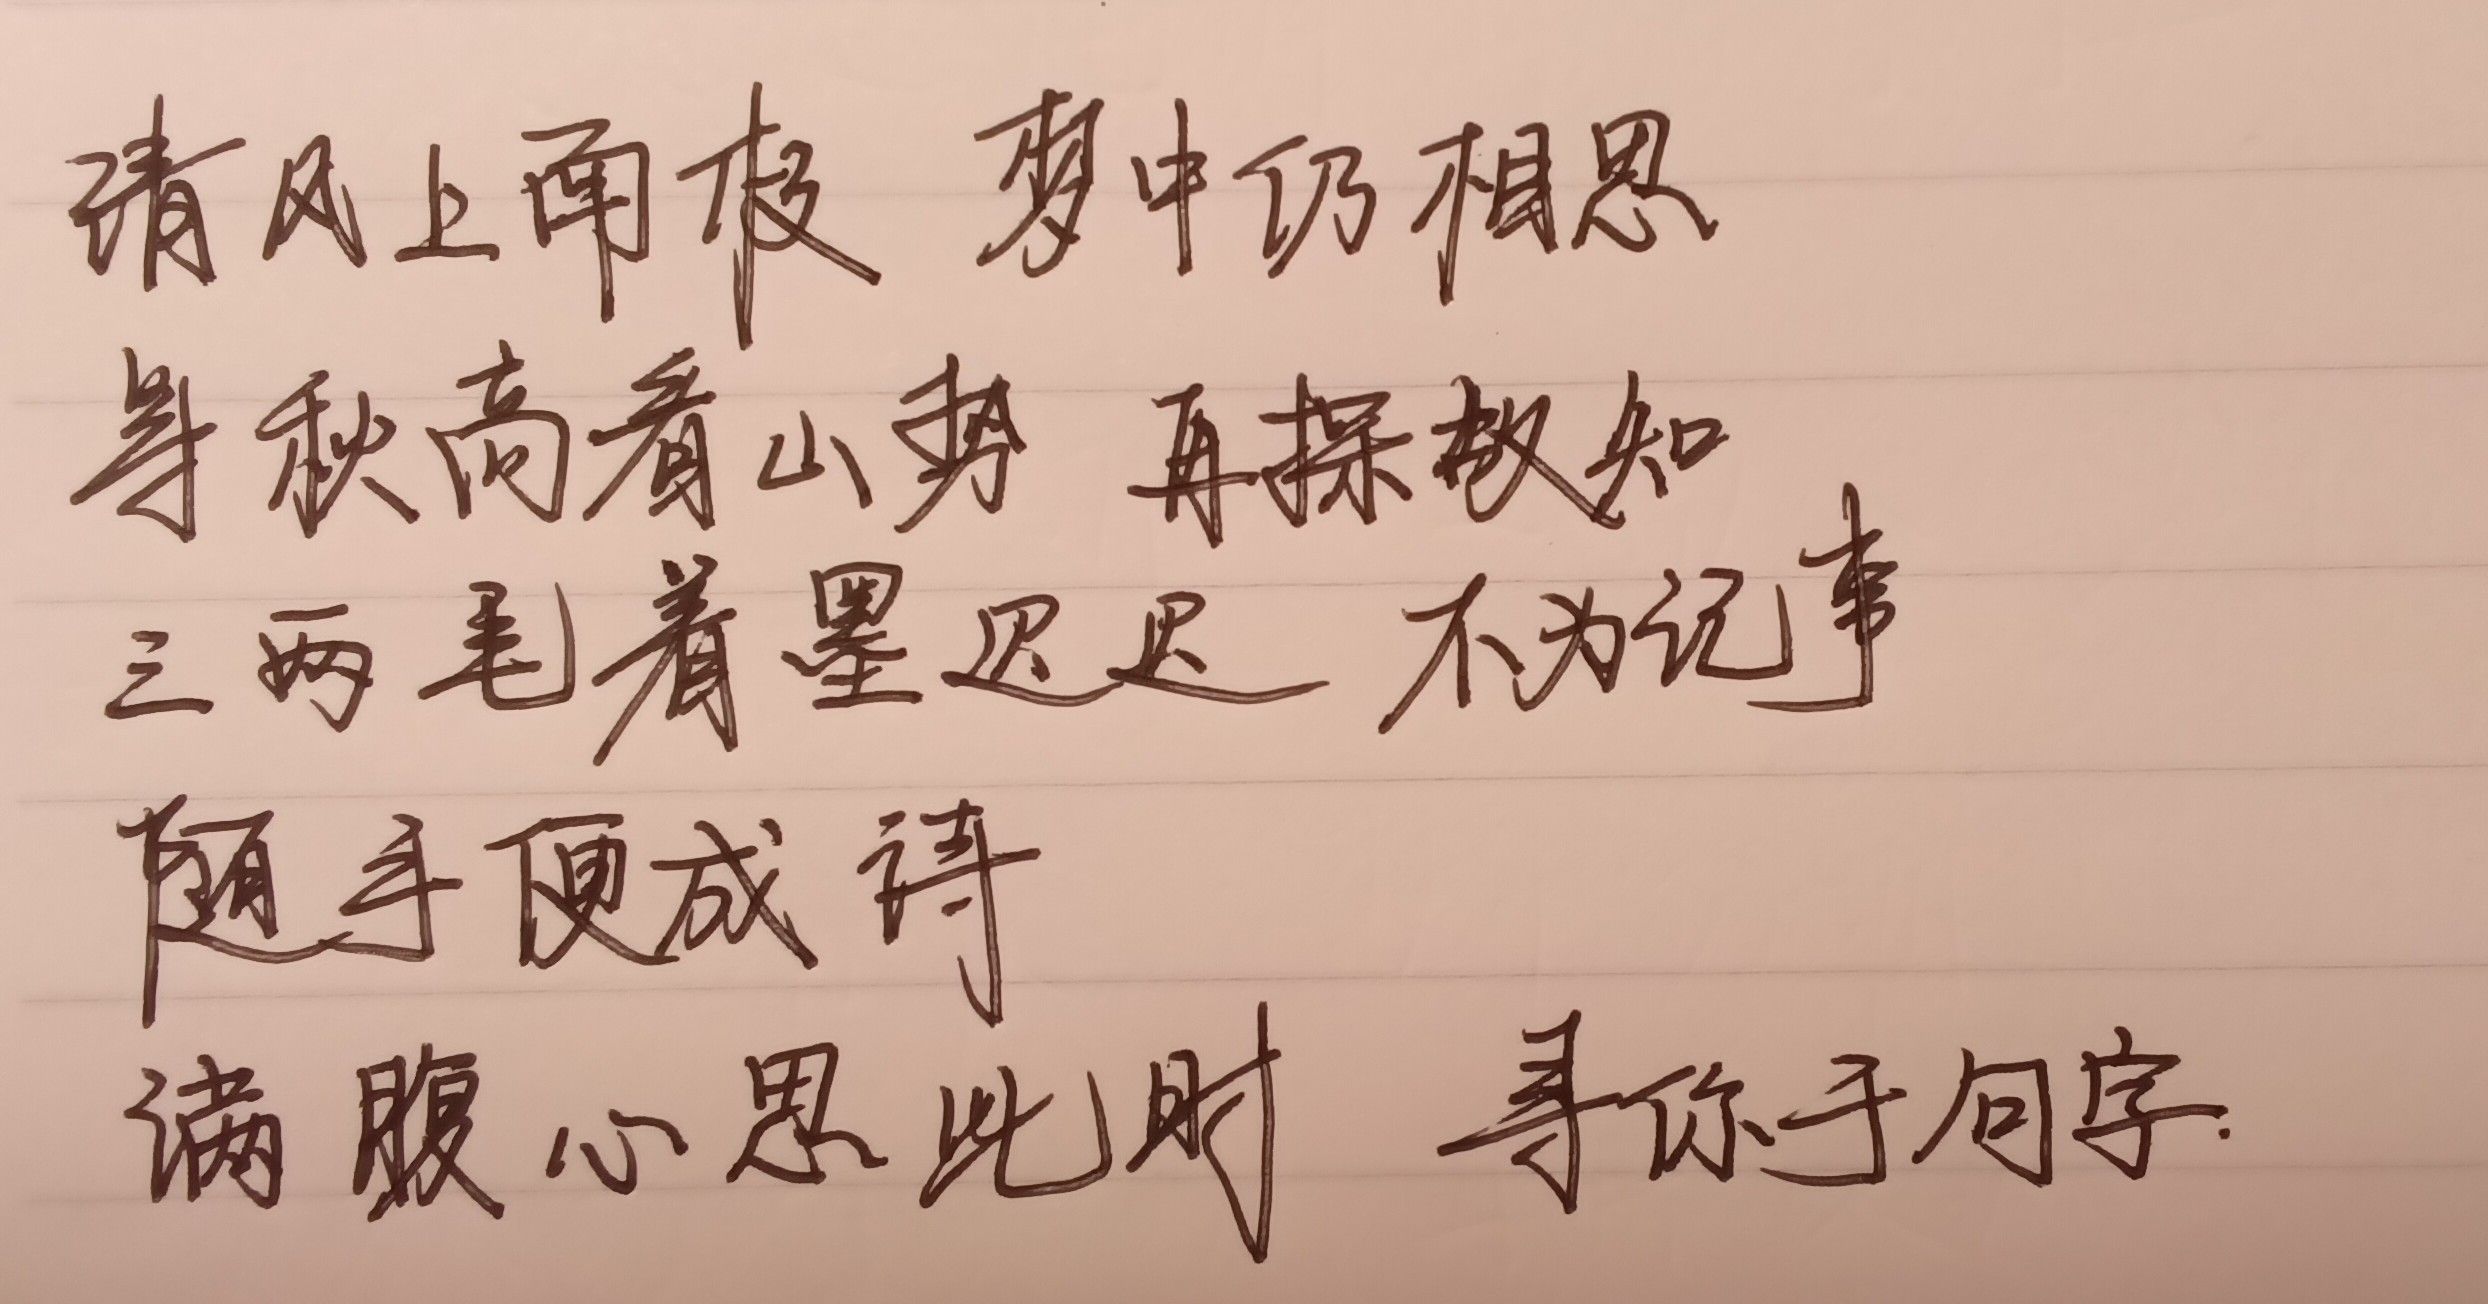 清风上南枝 梦中仍相思
寻秋高看山势 再探故知
三两毛着墨迟迟 不为记事
随手便成诗
满腹心思此时 寻你于句字.